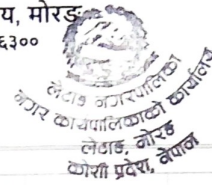 य, मोरङ
६३००
लेटाङ नगरपालिका
नगर कार्यपालिकाको कार्यालय
लेटाङ, मोरङ
कोशी प्रदेश, नेपाल